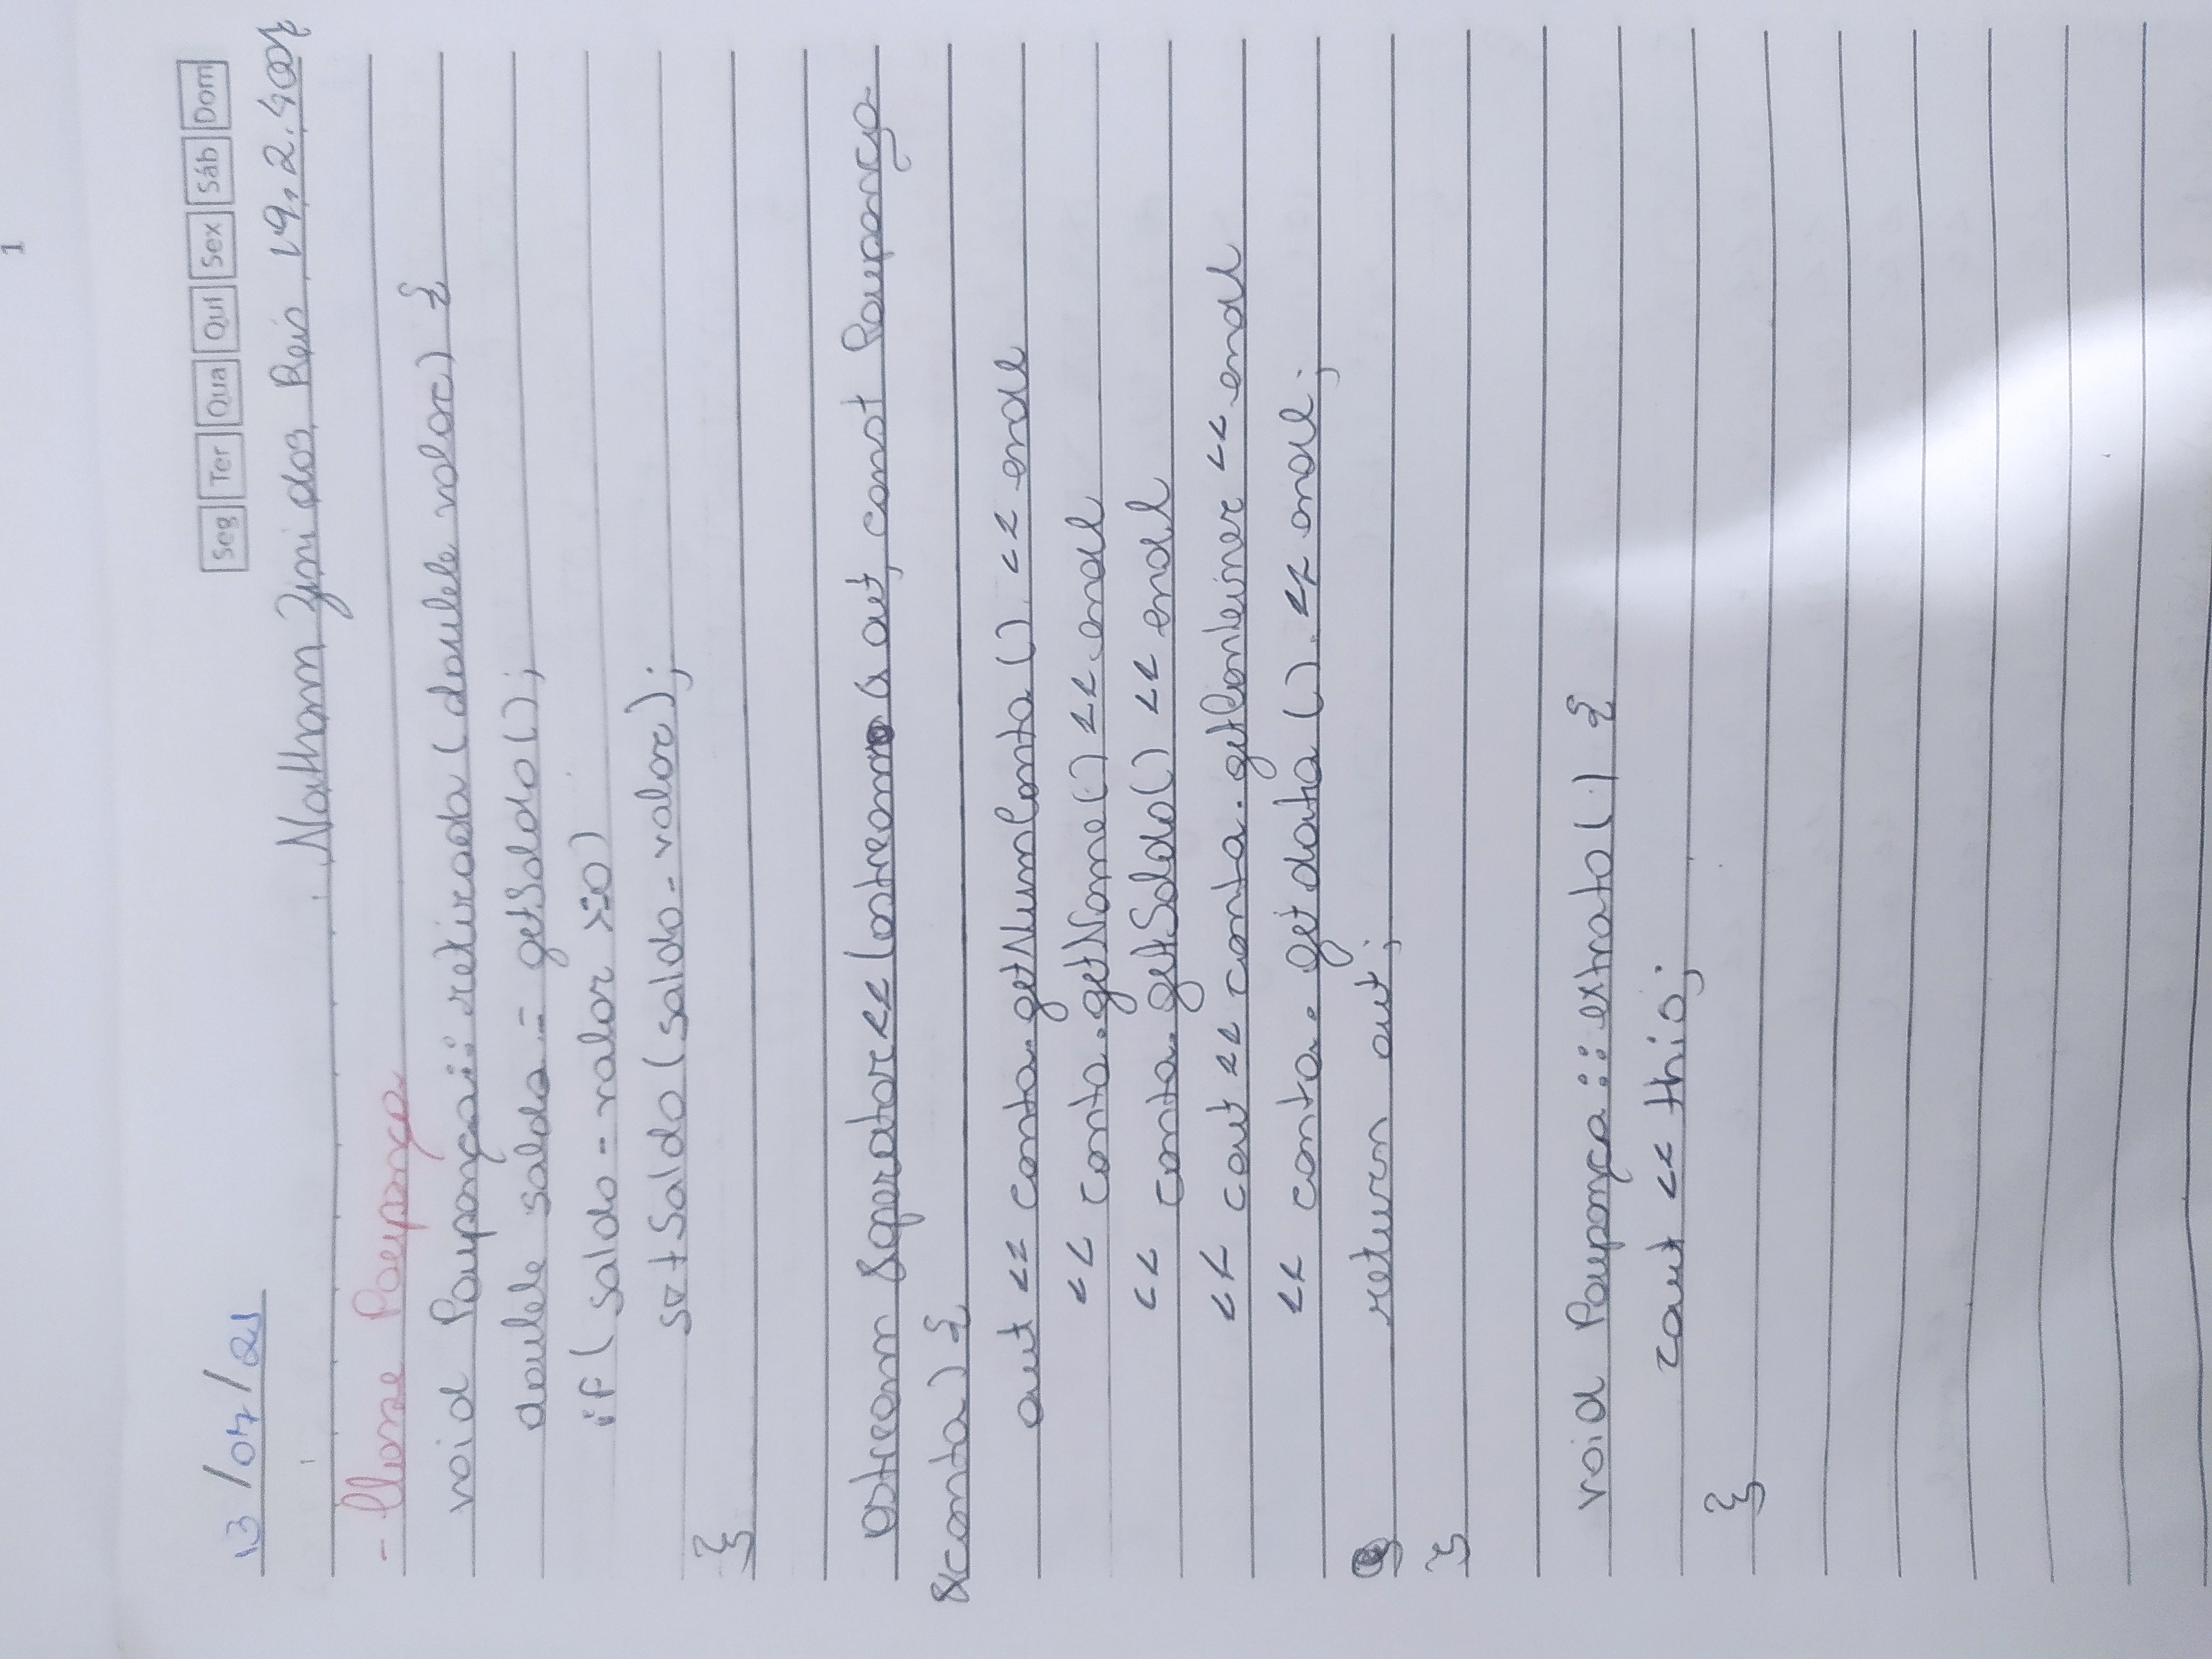 1
13/07/21
Seg Ter Qua Qui Sex Sáb Dom
Nathann Zini dos Reis 19.2.4007
- Classe Poupança
void Poupança::retirada(double valor) {
double saldo = getSaldo();
if( saldo - valor >=0)
setSaldo(saldo - valor);
}
ostream &operator<<(ostream& out, const Poupança
&conta) {
out << conta.getNumConta() << endl
<< conta.getNome() << endl
<< conta.getSaldo() << endl
<< cout << conta.getConteiner << endl
<< conta.getdatia() << endl;
return out;
}
void Poupança::extrato() {
cout << this;
}